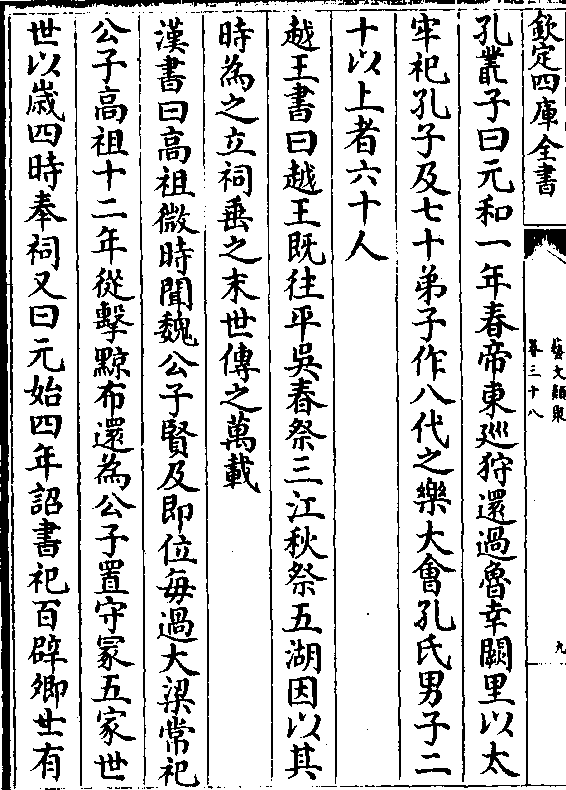 欽定四庫全書
藝文類聚
卷三十八
九
孔叢子曰元和一年春帝東廵狩還過魯幸闕里以太
牢祀孔子及七十弟子作八代之樂大會孔氏男子二
十以上者六十人
越王書曰越王既往平吳春祭三江秋祭五湖因以其
時為之立祠垂之末世傳之萬載
漢書曰高祖微時聞魏公子賢及即位每過大梁常祀
公子高祖十二年從擊黥布還為公子置守冢五家世
世以歲四時奉祠又曰元始四年詔書祀百辟卿士有